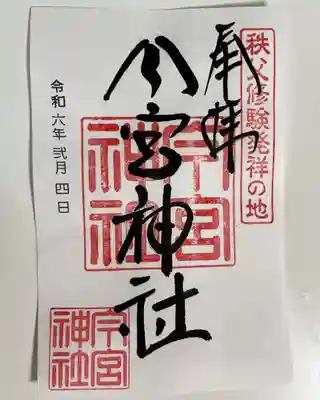 秩父修験発祥の地
奉拝
今宮神社
今宮
神社
令和六年 弐月 四日
今宮
神社